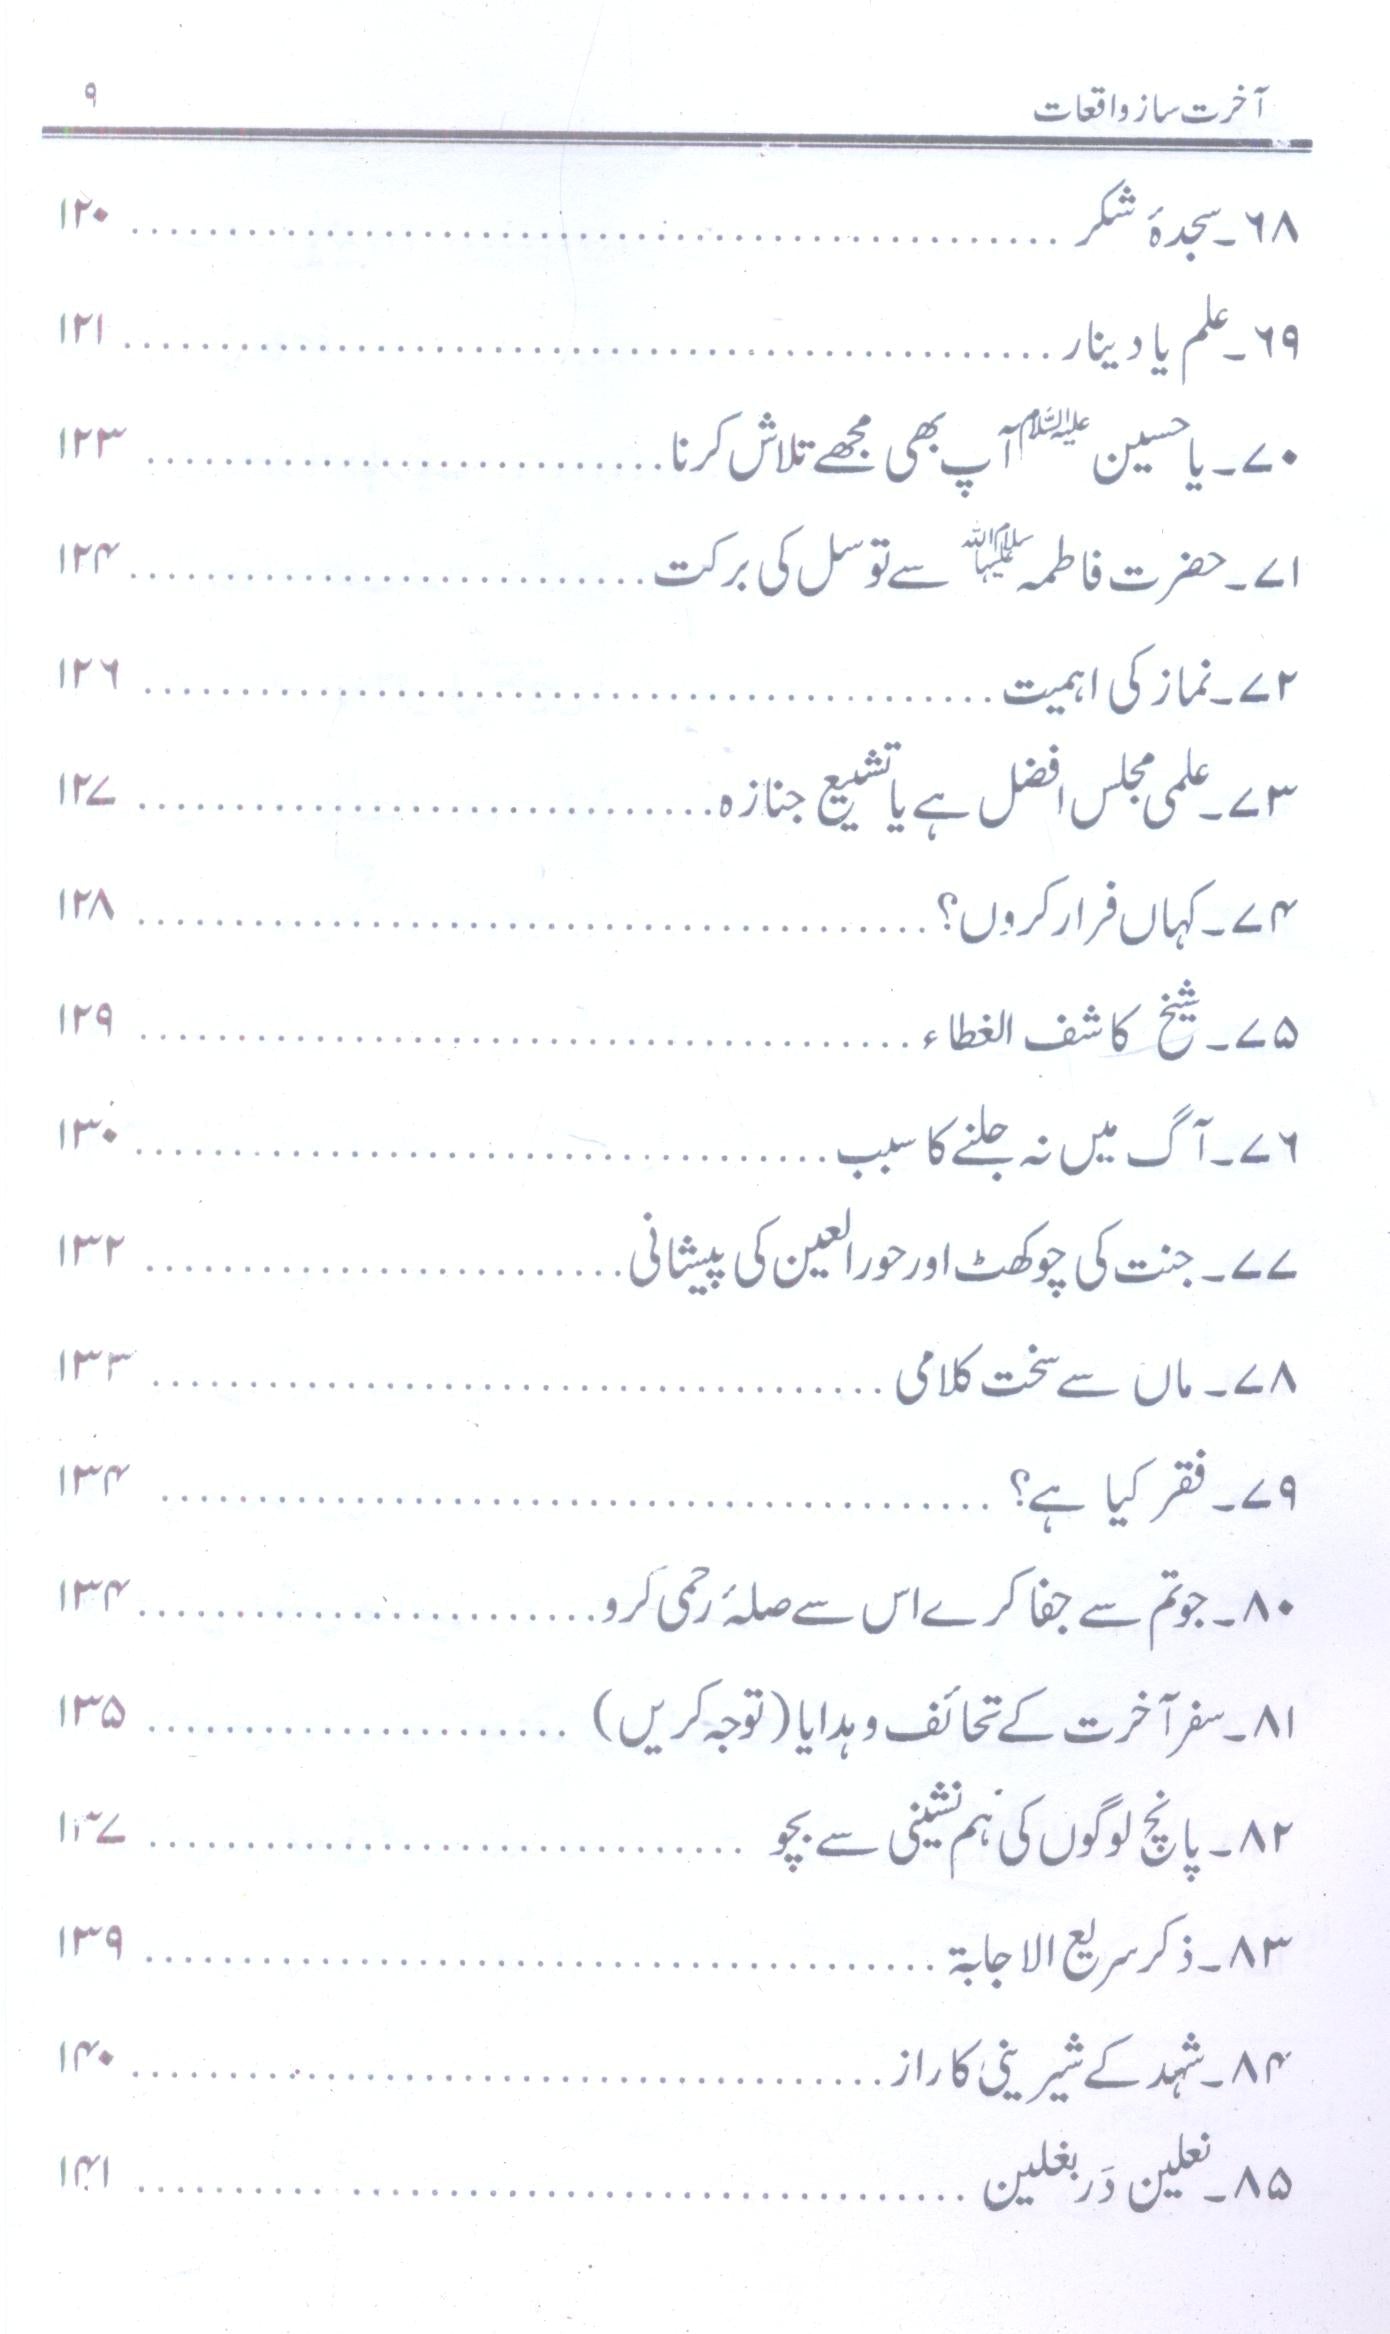 آخرت ساز واقعات ۹
۶۸۔ سجدۂ شکر ۱۲۰
۶۹۔ علم یا دینار ۱۲۱
۷۰۔ یا حسین علیہ السلام آپ بھی مجھے تلاش کرنا ۱۲۳
۷۱۔ حضرت فاطمہ سلام اللہ علیہا سے توسل کی برکت ۱۲۴
۷۲۔ نماز کی اہمیت ۱۲۶
۷۳۔ علمی مجلس افضل ہے یا تشییع جنازہ ۱۲۷
۷۴۔ کہاں فرار کروں؟ ۱۲۸
۷۵۔ شیخ کاشف الغطاء ۱۲۹
۷۶۔ آگ میں نہ جلنے کا سبب ۱۳۰
۷۷۔ جنت کی چوکھٹ اور حور العین کی پیشانی ۱۳۲
۷۸۔ ماں سے سخت کلامی ۱۳۳
۷۹۔ فقر کیا ہے؟ ۱۳۴
۸۰۔ جو تم سے جفا کرے اس سے صلۂ رحمی کرو ۱۳۴
۸۱۔ سفر آخرت کے تحائف و ہدایا (توجہ کریں) ۱۳۵
۸۲۔ پانچ لوگوں کی ہم نشینی سے بچو ۱۳۷
۸۳۔ ذکر سریع الاجابۃ ۱۳۹
۸۴۔ شہد کے شیرینی کا راز ۱۴۰
۸۵۔ نعلین دَر بغلین ۱۴۱